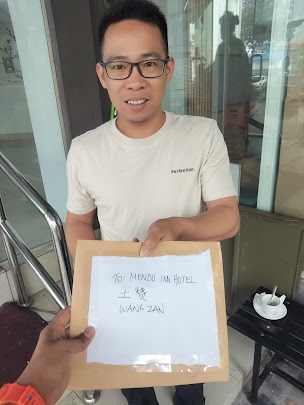 Perfection.
TO: MENDU INN HOTEL
王赞
WANG ZAN